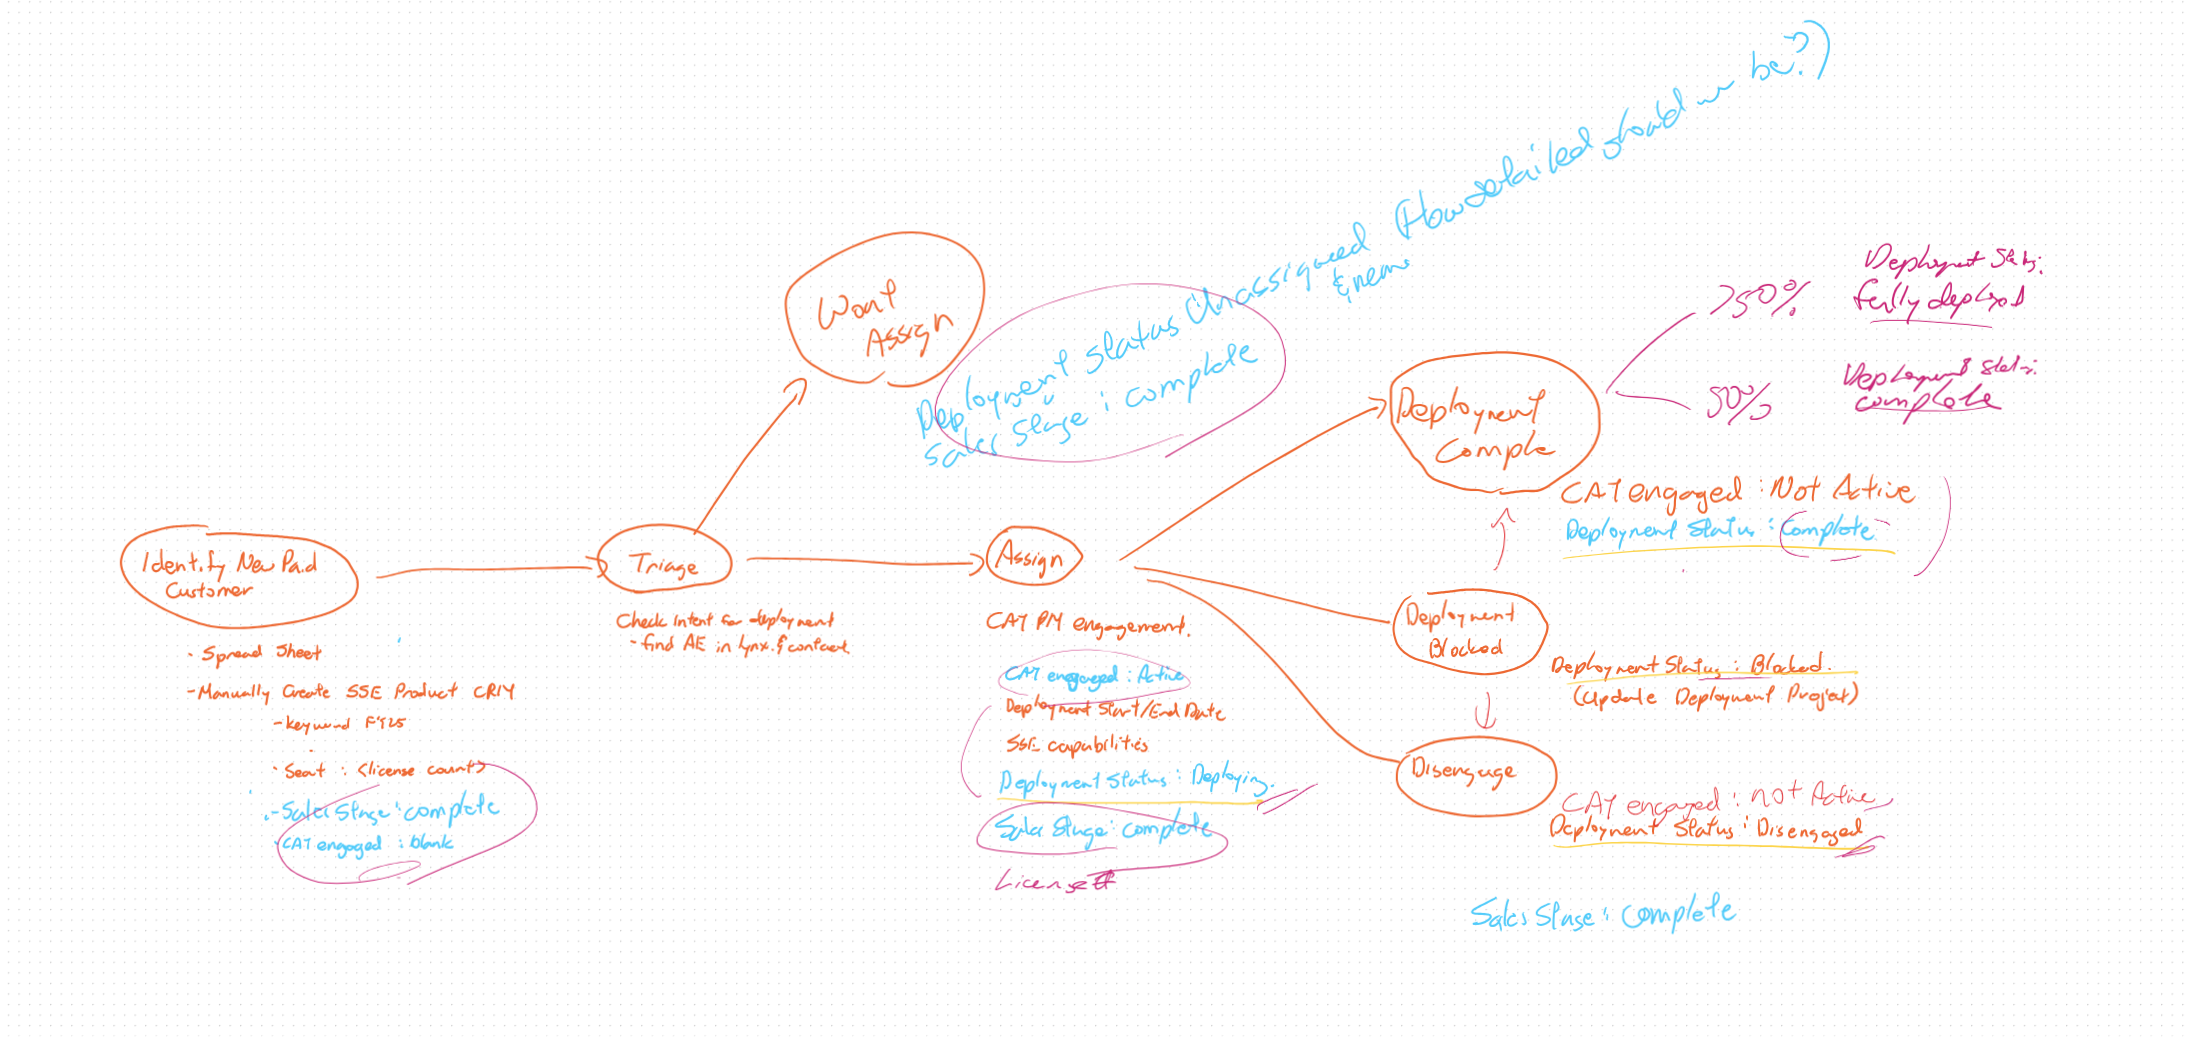 Identify New Paid
Customer
· Spread Sheet
- Manually Create SSE Product CRM
- keyword FY25
· Seat : <license count>
- Sales Stage : complete
· CAT engaged : blank
Triage
Check intent for deployment
- find AE in Lynx & contact
Wont
Assign
Deployment Status Unassigned (How detailed should we be?)
Sales Stage : complete
Assign
CAT PM engagement.
CAT engaged : Active
Deployment Start/End Date
SSE capabilities
Deployment Status : Deploying.
Sales Stage : complete
License #
Deployment
Comple
>50%
Deployment Status:
fully deployed
50%
Deployment Status:
complete
CAT engaged : Not Active
Deployment Status : Complete
Deployment
Blocked
Deployment Status : Blocked.
(Update Deployment Project)
Disengage
CAT engaged : not Active
Deployment Status : Disengaged
Sales Stage : complete